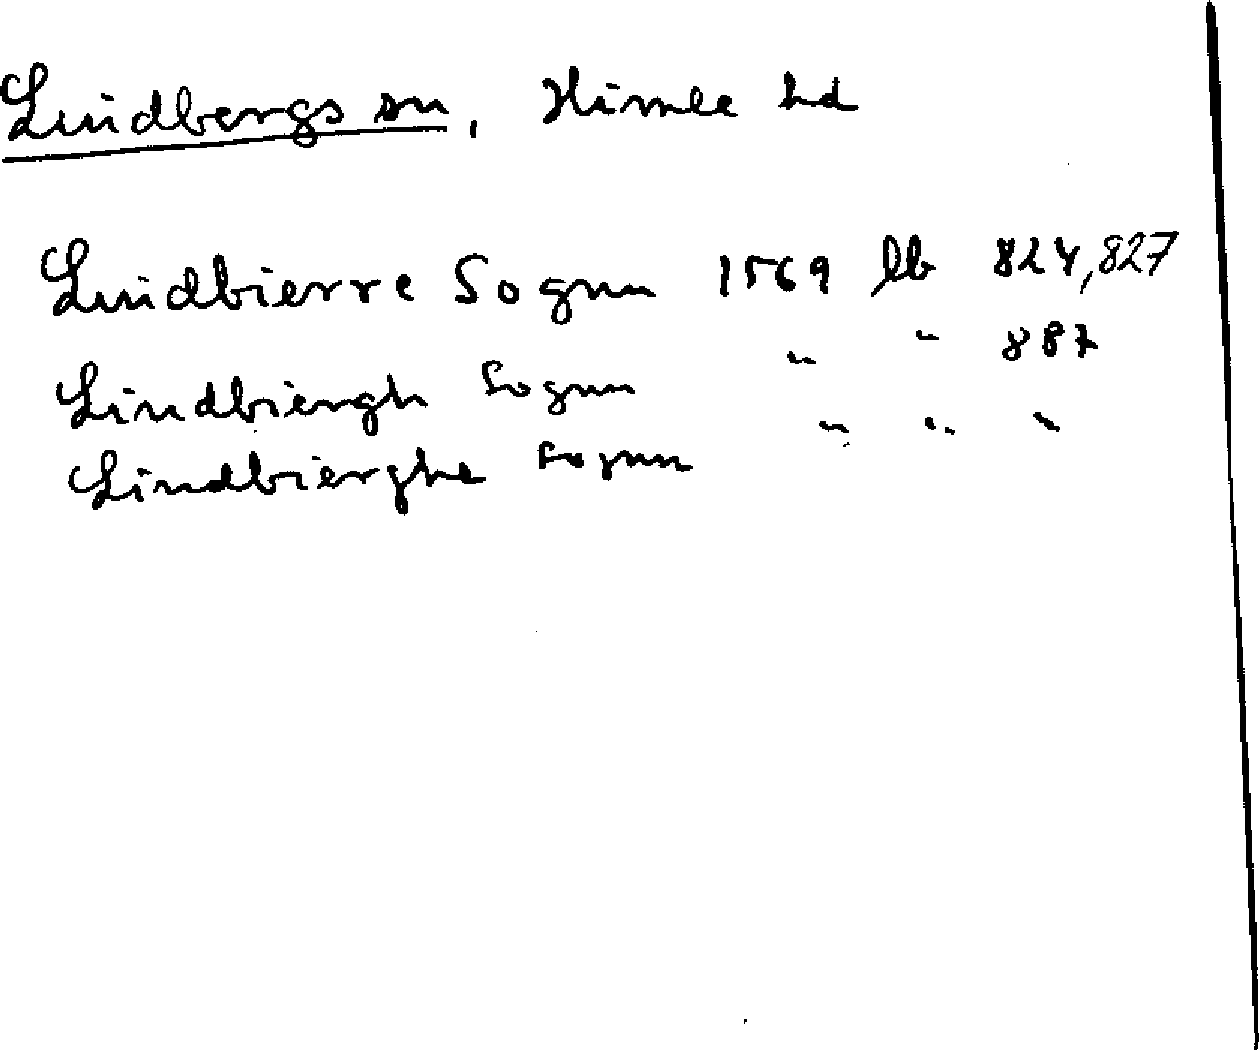 Lindbergs sn, Himle hd
Lindbierre Sognn 1569 lb 824,827
Lindbiergh Sognn " " 887
Lindbierghe Sognn " " "